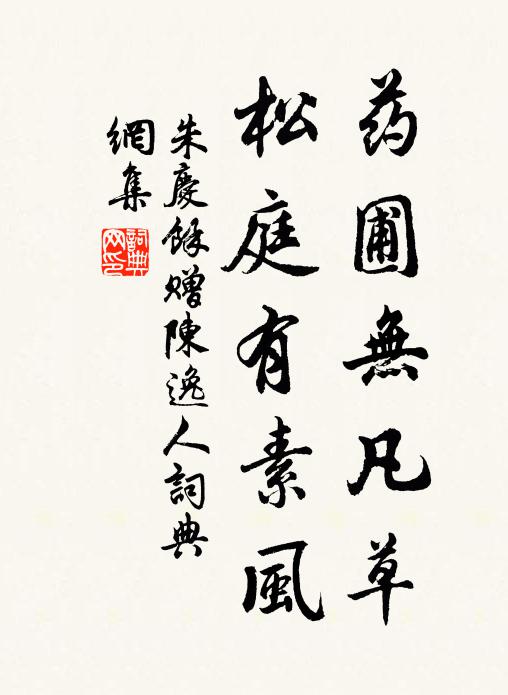 药圃無凡草
松庭有素風
朱慶餘赠陳逸人詞典
網集
詞典
网印